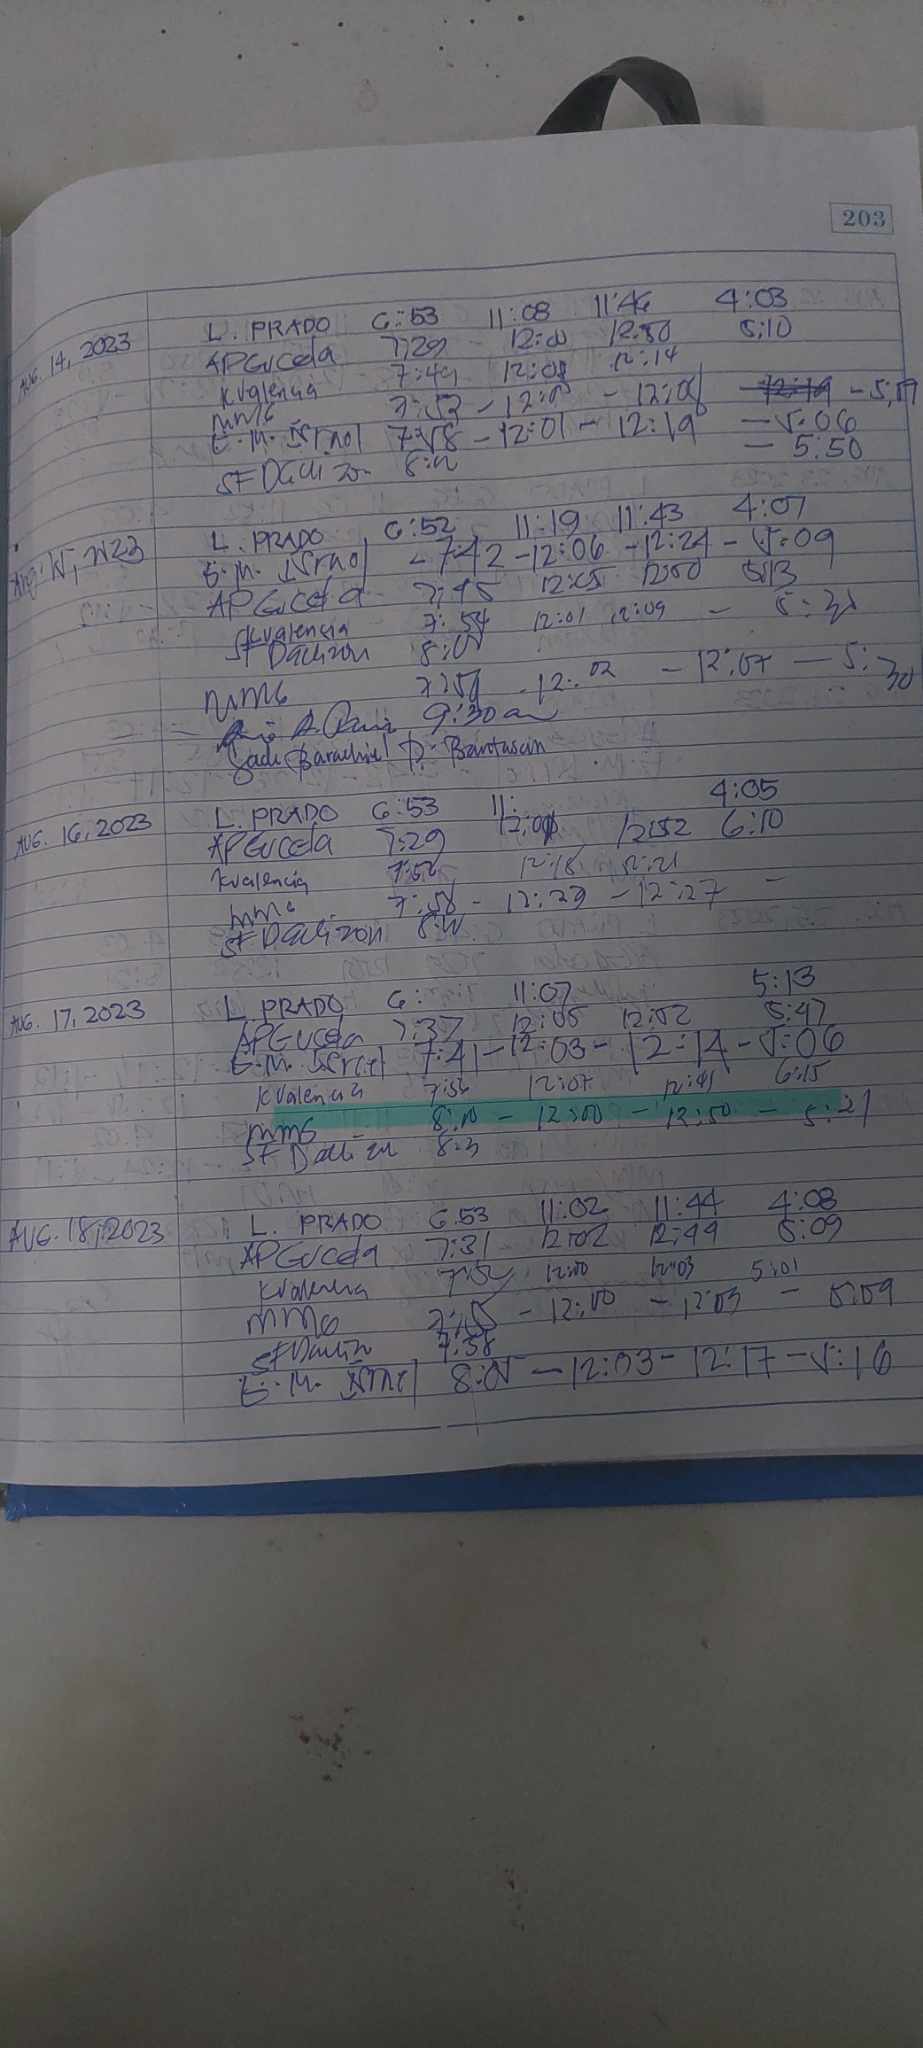 203
AUG. 14, 2023 L. PRADO 6:53 11:08 11:46 4:03
APGuceda 7:29 12:00 12:50 5:10
Kvalencia 7:49 12:08 12:14
MMG 7:53 - 12:00 - 12:08 - 5:17
E.M. 7:58 - 12:01 - 12:19 - 5:06
SF 8:00 - 5:50
Aug. 15, 2023 L. PRADO 6:52 11:19 11:43 4:07
E.M. - 7:42 - 12:06 - 12:24 - 5:09
APGuceda 7:45 12:05 12:50 5:13
Kvalencia 7:54 12:01 12:09 -
SF 8:01
MMG 7:58 - 12:02 - 12:07 - 5:30
9:30 am
AUG. 16, 2023 L. PRADO 6:53 11: 4:05
APGuceda 7:29 12:01 12:52 6:10
Kvalencia 7:52 12:18 12:21
MMG 7:58 - 12:23 - 12:27 -
SF 8:00
AUG. 17, 2023 L. PRADO 6: 11:07 5:13
APGuceda 7:37 12:05 12:52 5:47
E.M. 7:41 - 12:03 - 12:14 - 5:06
Kvalencia 7:56 12:07 12:41 6:15
MMG 8:10 - 12:00 - 12:50 - 5:21
SF
AUG. 18, 2023 L. PRADO 6:53 11:02 11:44 4:08
APGuceda 7:31 12:02 12:49 5:09
Kvalencia 7:52 12:00 12:03 5:01
MMG 7:55 - 12:00 - 12:03 - 5:09
SF 7:58
E.M. 8:05 - 12:03 - 12:17 - 5:16